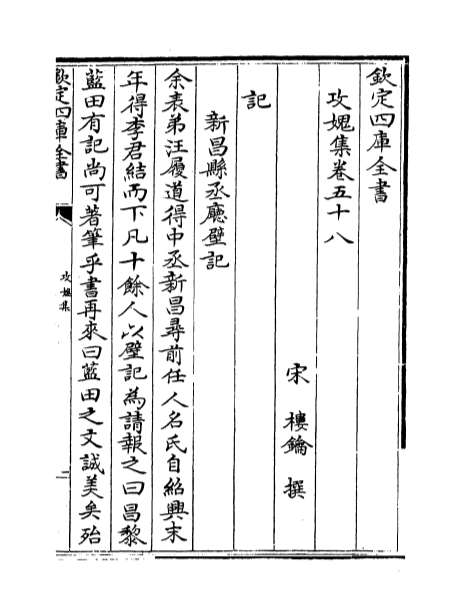 欽定四庫全書
攻媿集卷五十八
宋 樓鑰 撰
記
新昌縣丞廳壁記
余表弟汪履道得中丞新昌尋前任人名氏自紹興末
年得李君結而下凡十餘人以壁記為請報之曰昌黎
藍田有記尚可著筆乎書再來曰藍田之文誠美矣殆
欽定四庫全書
攻媿集